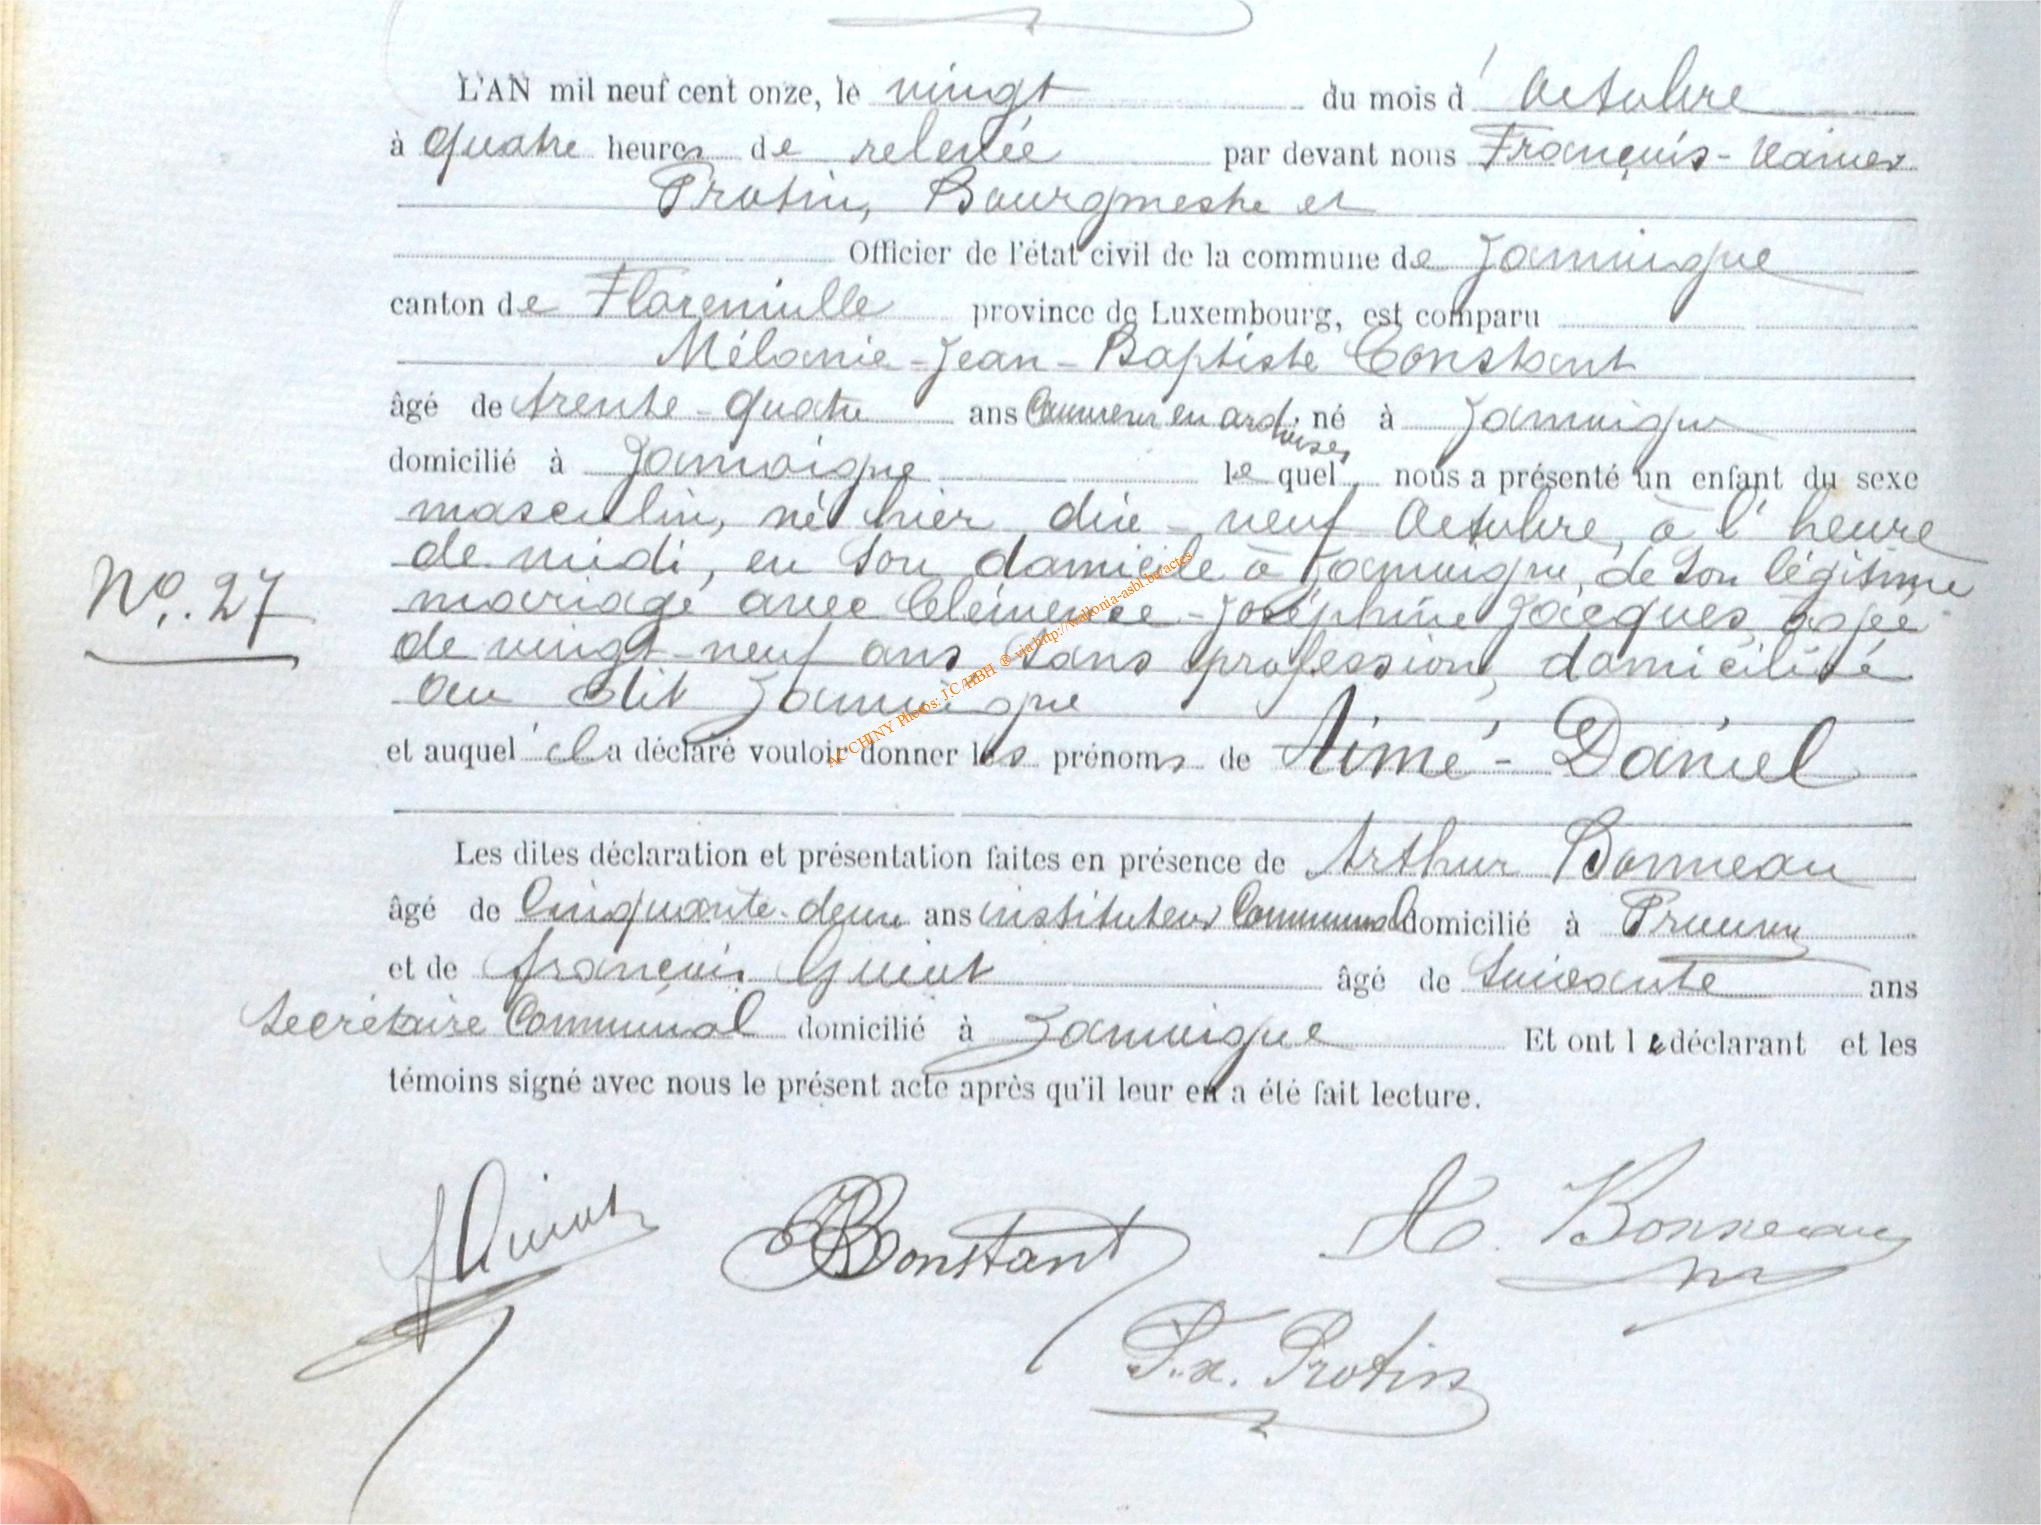 L'AN mil neuf cent onze, le vingt du mois d'Octobre
à quatre heures de relevée par devant nous François-Xavier
Protin, Bourgmestre et
Officier de l'état civil de la commune de Jamoigne
canton de Florenville province de Luxembourg, est comparu
Mélanie-Jean-Baptiste Constant
âgé de trente-quatre ans Couvreur en ardoises né à Jamoigne
domicilié à Jamoigne lequel nous a présenté un enfant du sexe
masculin, né hier dix-neuf Octobre, à l'heure
de midi, en son domicile à Jamoigne, de son légitime
No. 27
mariage avec Clémence-Joséphine Jacques, âgée
de vingt-neuf ans sans profession, domiciliée
au dit Jamoigne
et auquel il a déclaré vouloir donner les prénoms de Aimé-Daniel
Les dites déclaration et présentation faites en présence de Arthur Bonneau
âgé de Cinquante-deux ans instituteur Communal domicilié à Prouvy
et de françois Guiot âgé de soixante ans
Secrétaire Communal domicilié à Jamoigne Et ont le déclarant et les
témoins signé avec nous le présent acte après qu'il leur en a été fait lecture.
Constant
A. Bonneau
F. x. Protin
AC CHINY Photos: J.C /HBH ® via http://wallonia-asbl.be/actes